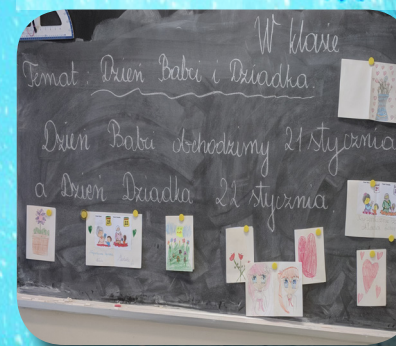 W klasie
Temat: Dzień Babci i Dziadka.
Dzień Babci obchodzimy 21 stycznia
a Dzień Dziadka 22 stycznia.